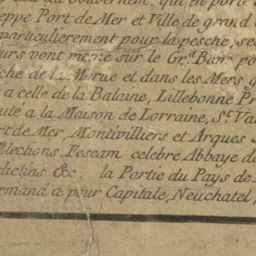 du Gouvernement, qui en porte
eppe Port de Mer et Ville de grand
particulierement pour la pesche, se
eurs vont mesme sur le Gr. Banc po
che de la Morue et dans les Mers
a celle de la Balaine, Lillebonne Pr
uté a la Maison de Lorraine, St. Va
rt de Mer, Montivilliers et Arques
Elections. Fescam celebre Abbaye de
edictins &c. la Partie du Pays de
ormand a pour Capitale, Neuchatel,